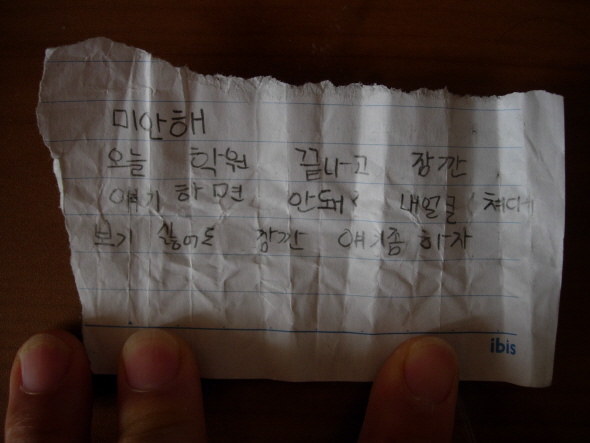 미안해
오늘 학원 끝나고 장깐
얘기 하면 안돼? 내얼굴 쳐다
보기 싫어도 장깐 얘기좀 하자
ibis